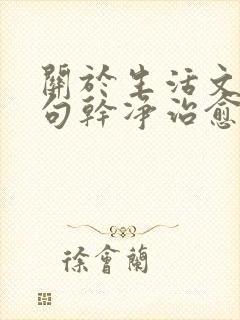 關於生活文
句幹凈治愈
徐會蘭